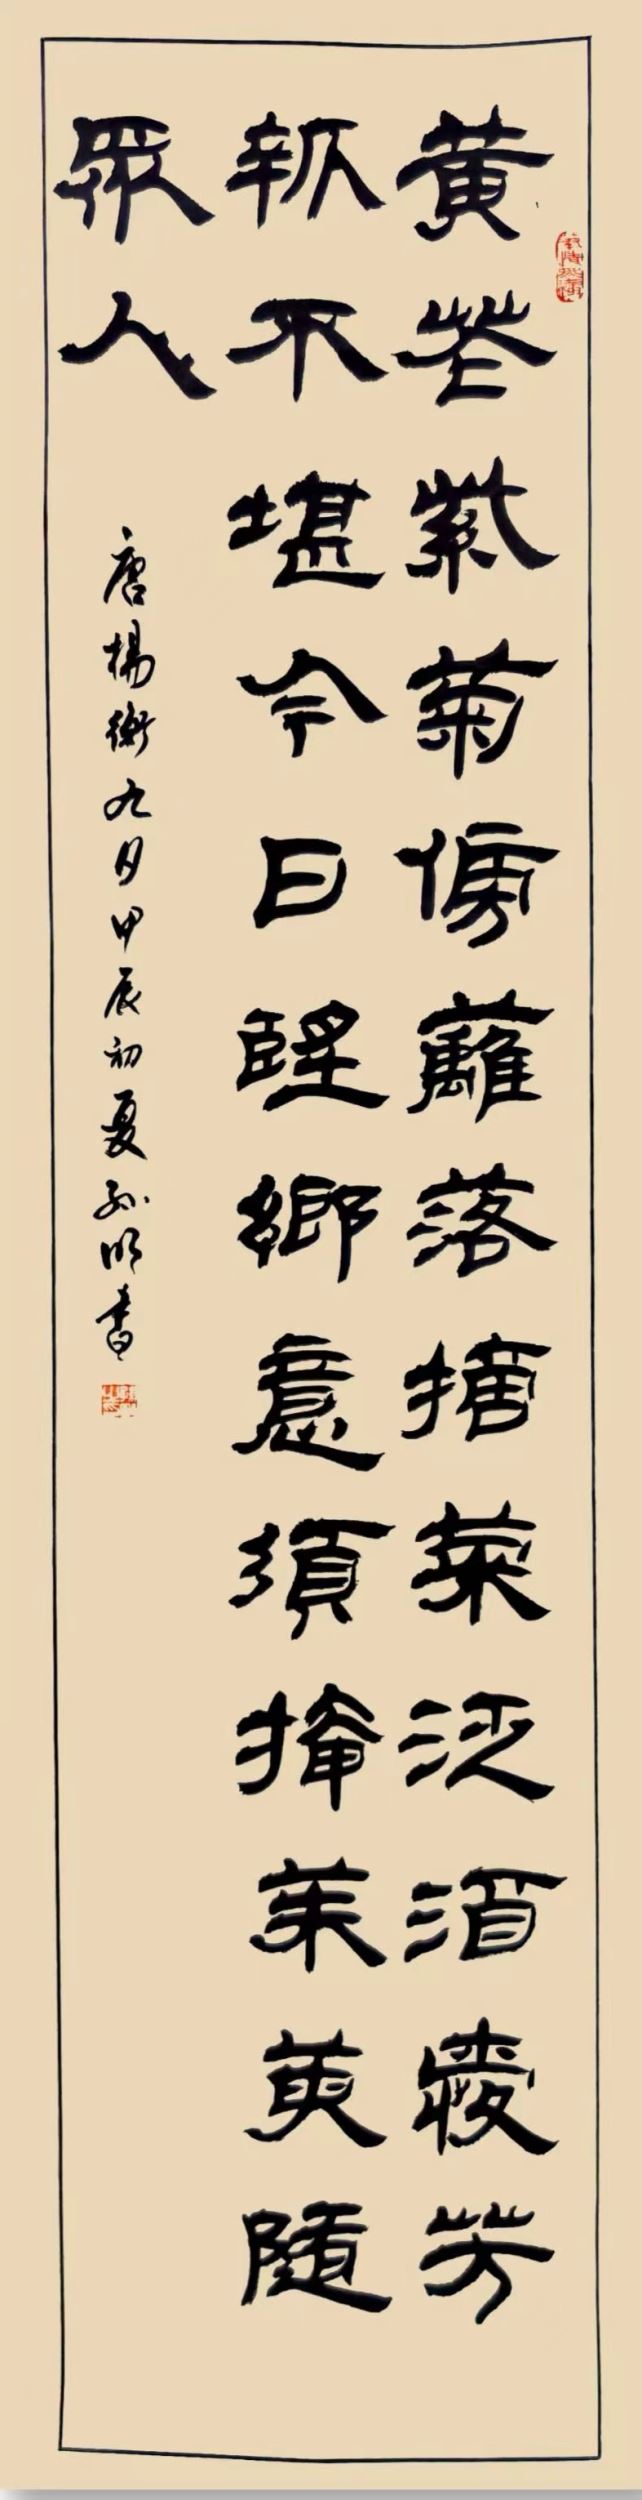 黃花紫菊傍蘺落摘菜泛酒愛芳
新不堪今日望鄉意須插茱萸隨
眾人
唐楊衡九日甲辰初夏孫明書